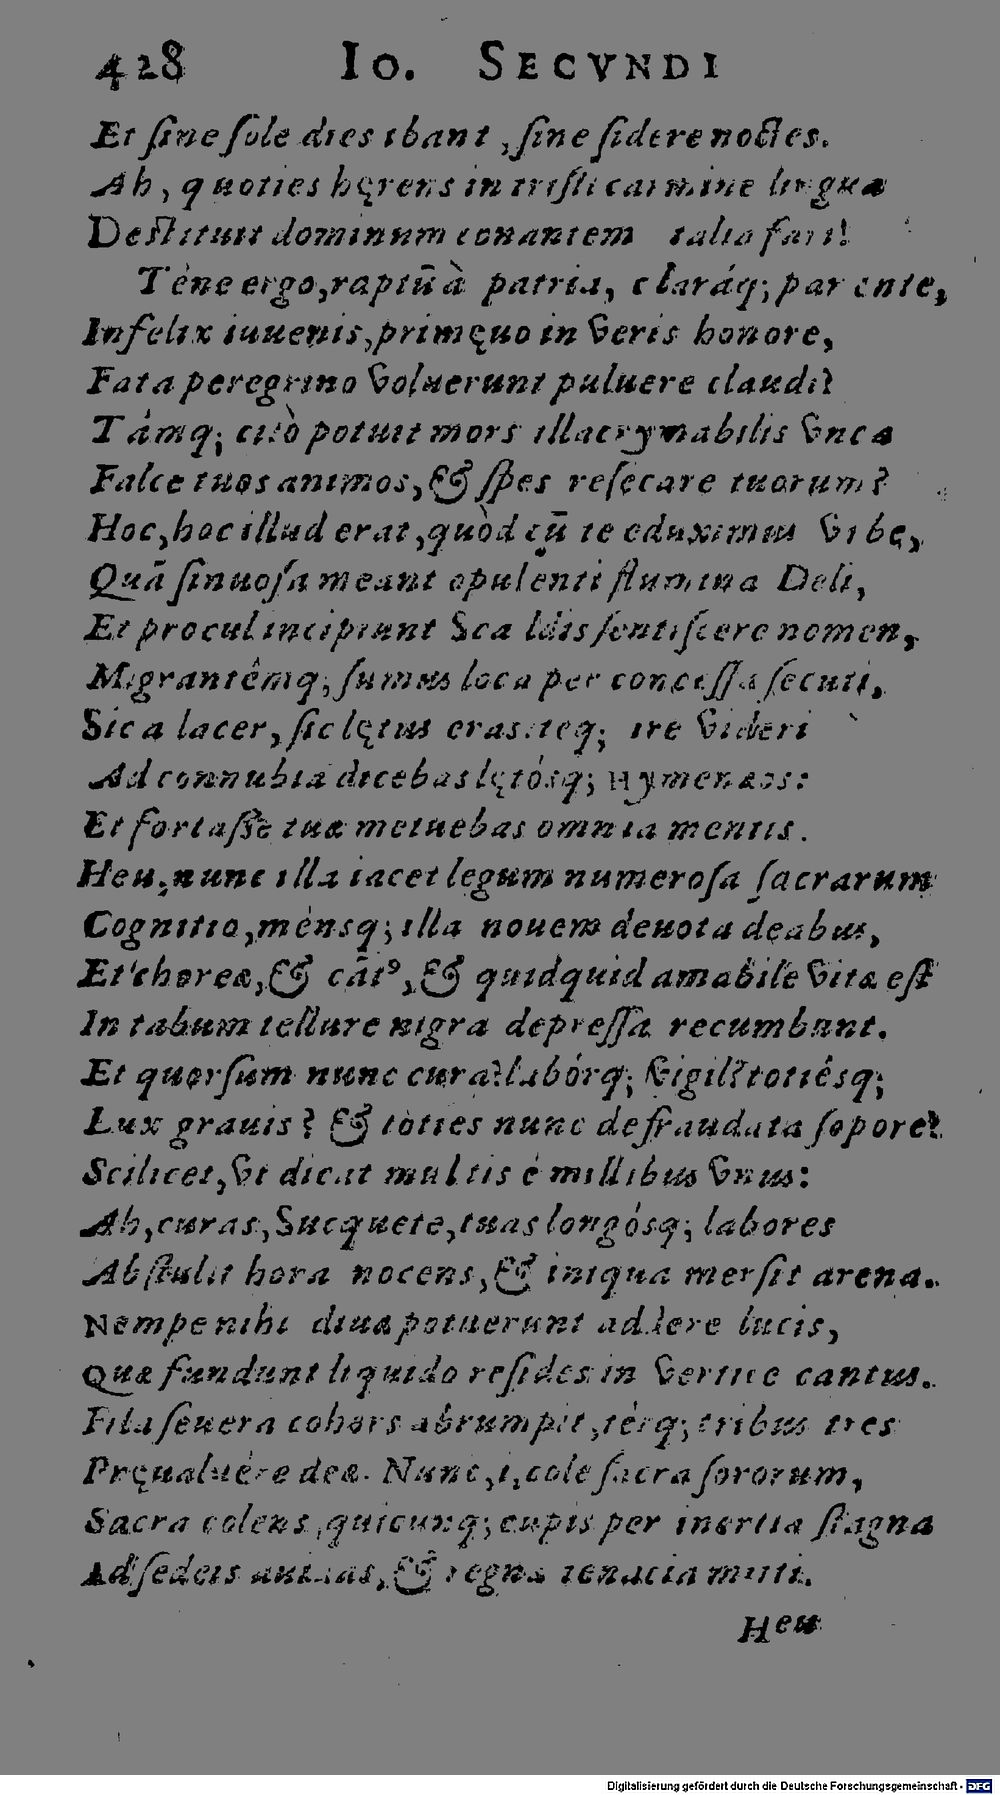 428 Io. Secvndi
Et ſine ſole dies ibant, ſine ſidere noctes.
Ah, quoties hęrens in triſti carmine lingua
Deſtituit dominum conantem talia fari!
Téne ergo, raptũ à patria, claráq; parente,
Infelix iuuenis, primęquo in veris honore,
Fata peregrino voluerunt puluere claudi?
Támq; citò potuit mors illacrymabilis vnca
Falce tuos animos, & ſpes reſecare tuorum?
Hoc, hoc illud erat, quòd cũ te eduximus vrbe,
Quã ſinuoſa meant opulenti flumina Deli,
Et procul incipiunt Scaldis ſentiſcere nomen,
Migrantémq; ſumus loca per conceſſa ſecuti,
Sic alacer, ſic lętus eras: teq; ire videri
Ad connubia dicebas lętósq; Hymenæos:
Et fortaſſe tuæ metuebas omnia mentis.
Heu, nunc illa iacet legum numeroſa ſacrarum
Cognitio, ménsq; illa nouem deuota deabus,
Et choreæ, & cãtꝰ, & quidquid amabile vitæ eſt
In tabum tellure nigra depreſſa recumbunt.
Et quorſum nunc cura? labórq; vigil? totiésq;
Lux grauis? & toties nunc defraudata ſopore?
Scilicet, vt dicat multis é millibus vnus:
Ah, curas, Sucquete, tuas longósq; labores
Abſtulit hora nocens, & iniqua merſit arena.
Nempe nihi diuæ potuerunt addere lucis,
Quæ fundunt liquido reſides in vertice cantus.
Fila ſeuera cohors abrumpit, térq; tribus tres
Pręualuére deæ. Nunc, i, cole ſacra ſororum,
Sacra colens, quicunq; cupis per inertia ſtagna
Ad ſedeis auidas, & regna tenacia mitti.
Heu
Digitalisierung gefördert durch die Deutsche Forschungsgemeinschaft - DFG